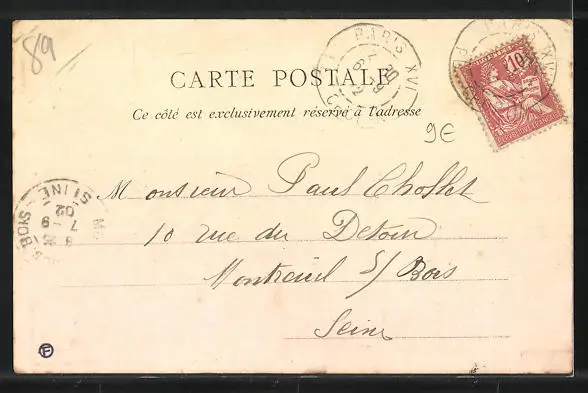 89
CARTE POSTALE
Ce côté est exclusivement réservé à l'adresse
9€
PARIS XVI
10
Monsieur Paul Chollet
10 rue du Detour
Montreuil s/ Bois
Seine
SEINE
F